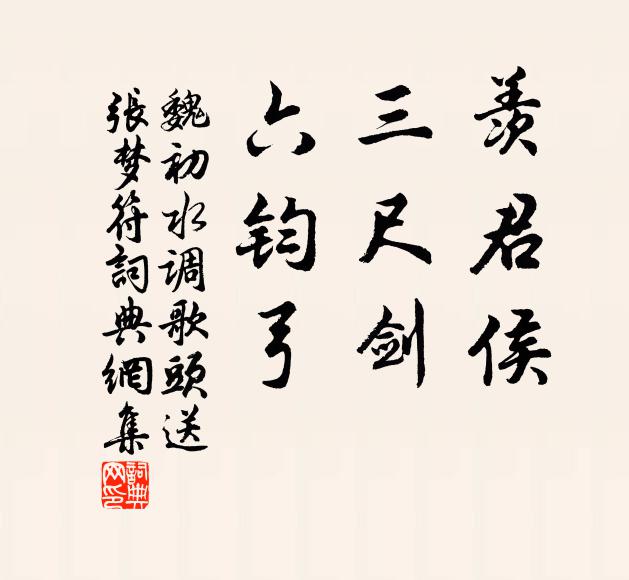 羡君侯
三尺剑
六钧弓
魏初水调歌頭送
張梦符詞典網集
詞典网印